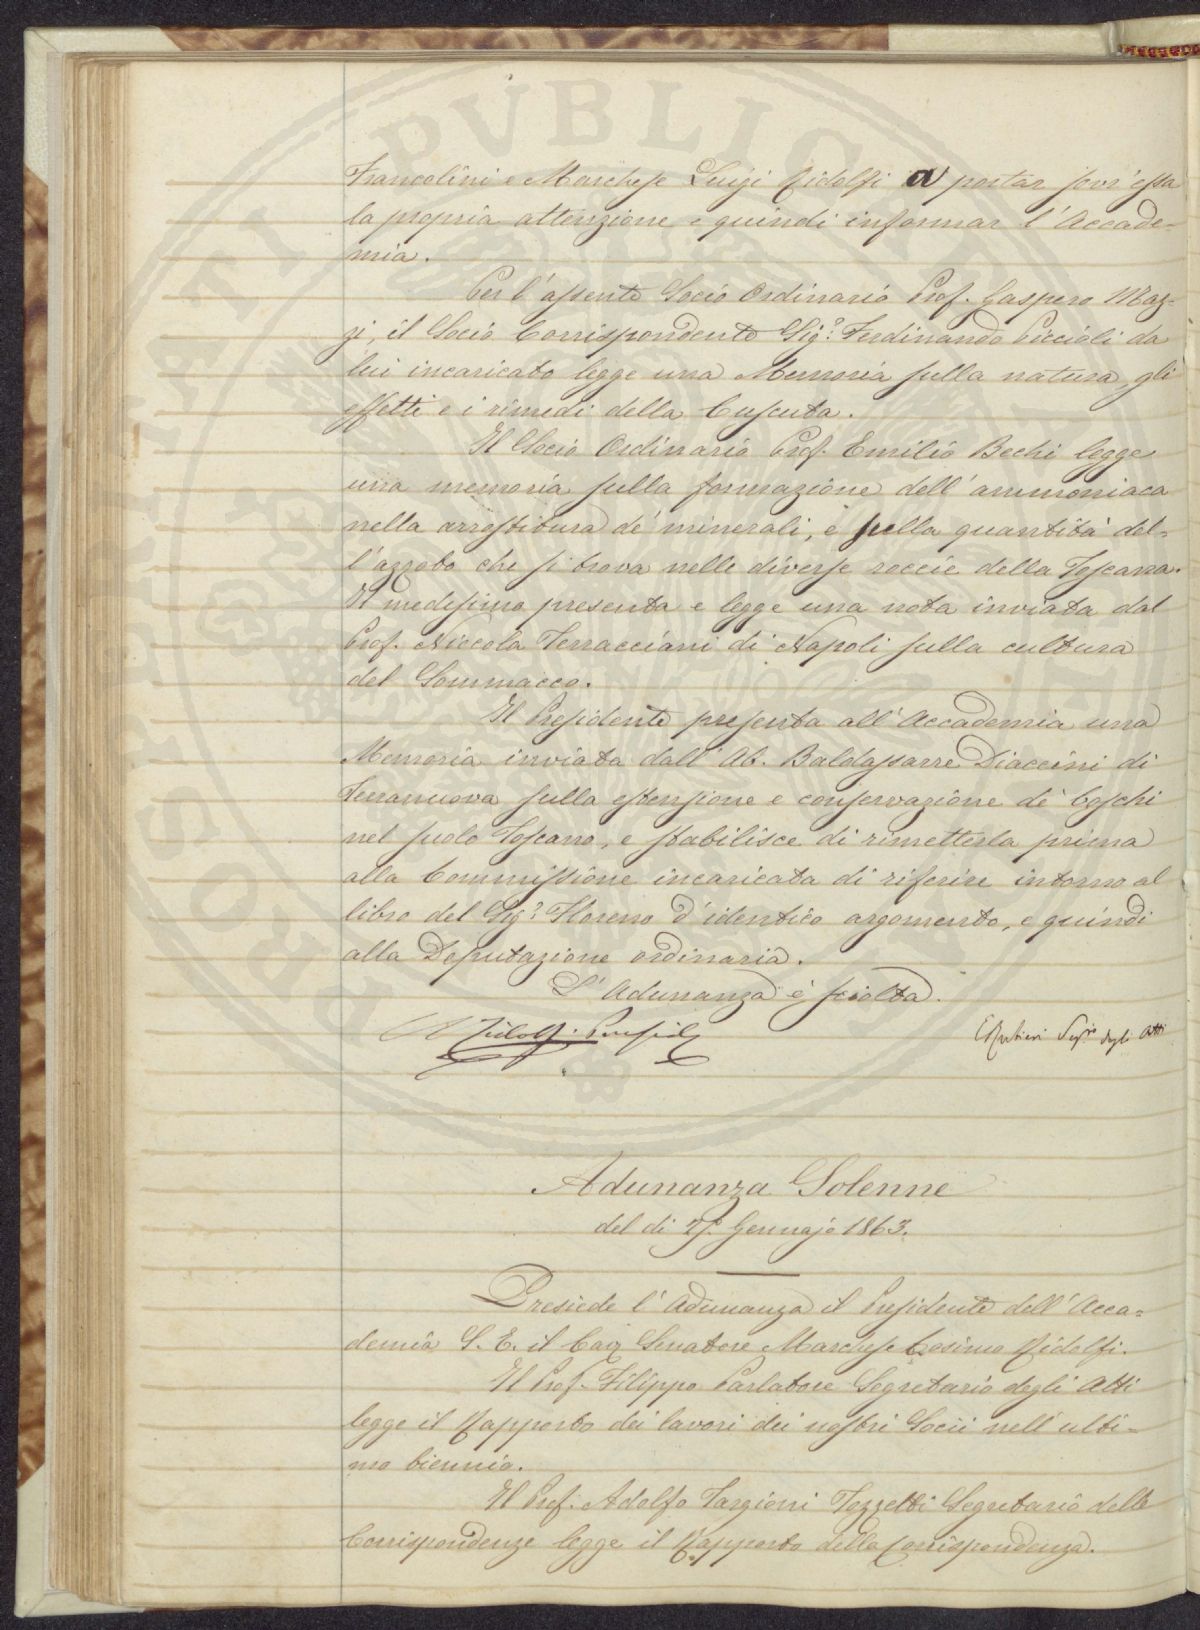 Francolini e Marchese Luigi Ridolfi a portar sovr'essa
la propria attenzione e quindi informar l'Accade=
mia.
Per l'assente Socio Ordinario Prof. Gaspero Maz=
zi, il Socio Corrispondente Sig.r Ferdinando Piccioli da
lui incaricato legge una Memoria sulla natura, gli
effetti e i rimedi della Cuscuta.
Il Socio Ordinario Prof. Emilio Bechi legge
una memoria sulla formazione dell'ammoniaca
nella arrostitura de' minerali, e sulla quantità del=
l'azzoto che si trova nelle diverse roccie della Toscana.
Il medesimo presenta e legge una nota inviata dal
Prof. Niccola Terracciani di Napoli sulla cultura
del Sommacco.
Il Presidente presenta all'Accademia una
Memoria inviata dall'Ab. Baldassarre Diaccini di
Terranuova sulla estensione e conservazione de' boschi
nel suolo Toscano, e stabilisce di rimetterla prima
alla Commissione incaricata di riferire intorno al
libro del Sig.r Floreno d'identico argomento, e quindi
alla Deputazione ordinaria.
L'Adunanza è sciolta.
C Ridolfi. Presid
E Rubieri Seg.rio degli Atti
Adunanza Solenne
del dì Gennajo 1863.
Presiede l'Adunanza il Presidente dell'Acca=
demia S. E. il Cav Senatore Marchese Cosimo Ridolfi.
Il Prof. Filippo Parlatore Segretario degli Atti
legge il Rapporto dei lavori dei nostri Socii nell'ulti=
mo biennio.
Il Prof. Adolfo Targioni Tozzetti Segretario delle
Corrispondenze legge il Rapporto della Corrispondenza.